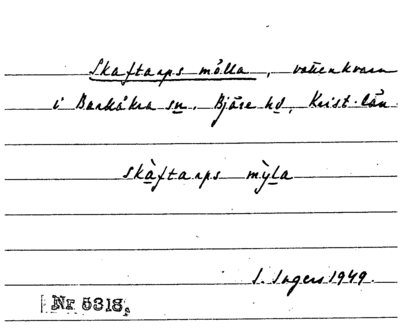 Skaftarps mölla, vattenkvarn
i Barkåkra sn, Bjäre hd, Krist. län
skàftarps mỳla
I. Ingers 1949.
Nr 5318.